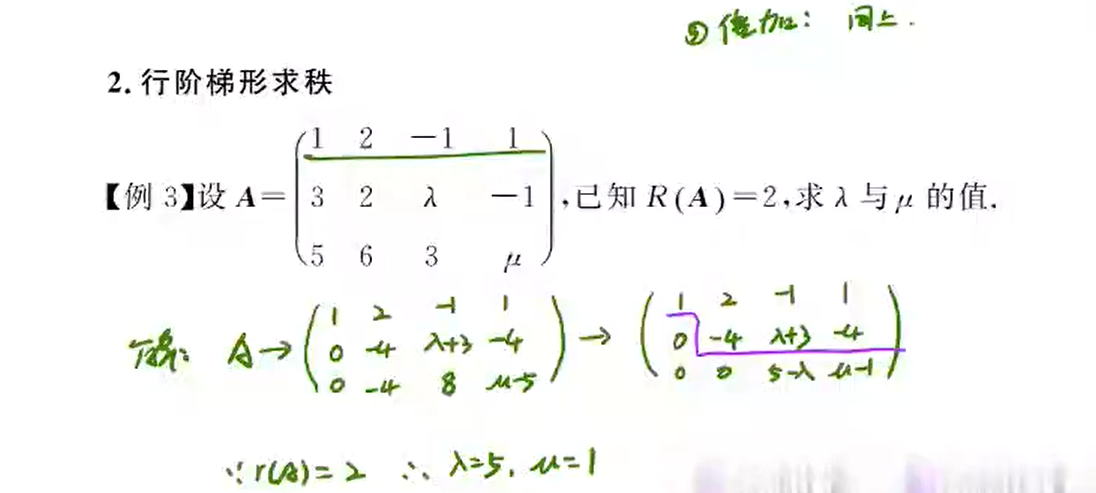 ③ 倍加: 同上.
2. 行阶梯形求秩
【例 3】设 A= (1 2 −1 1
3 2 λ −1
5 6 3 μ) ,已知 R(A)=2,求 λ 与 μ 的值.
解: A → (1 2 -1 1
0 -4 λ+3 -4
0 -4 8 μ-5) → (1 2 -1 1
0 -4 λ+3 -4
0 0 5-λ μ-1)
∵ r(A)=2 ∴ λ=5, μ=1